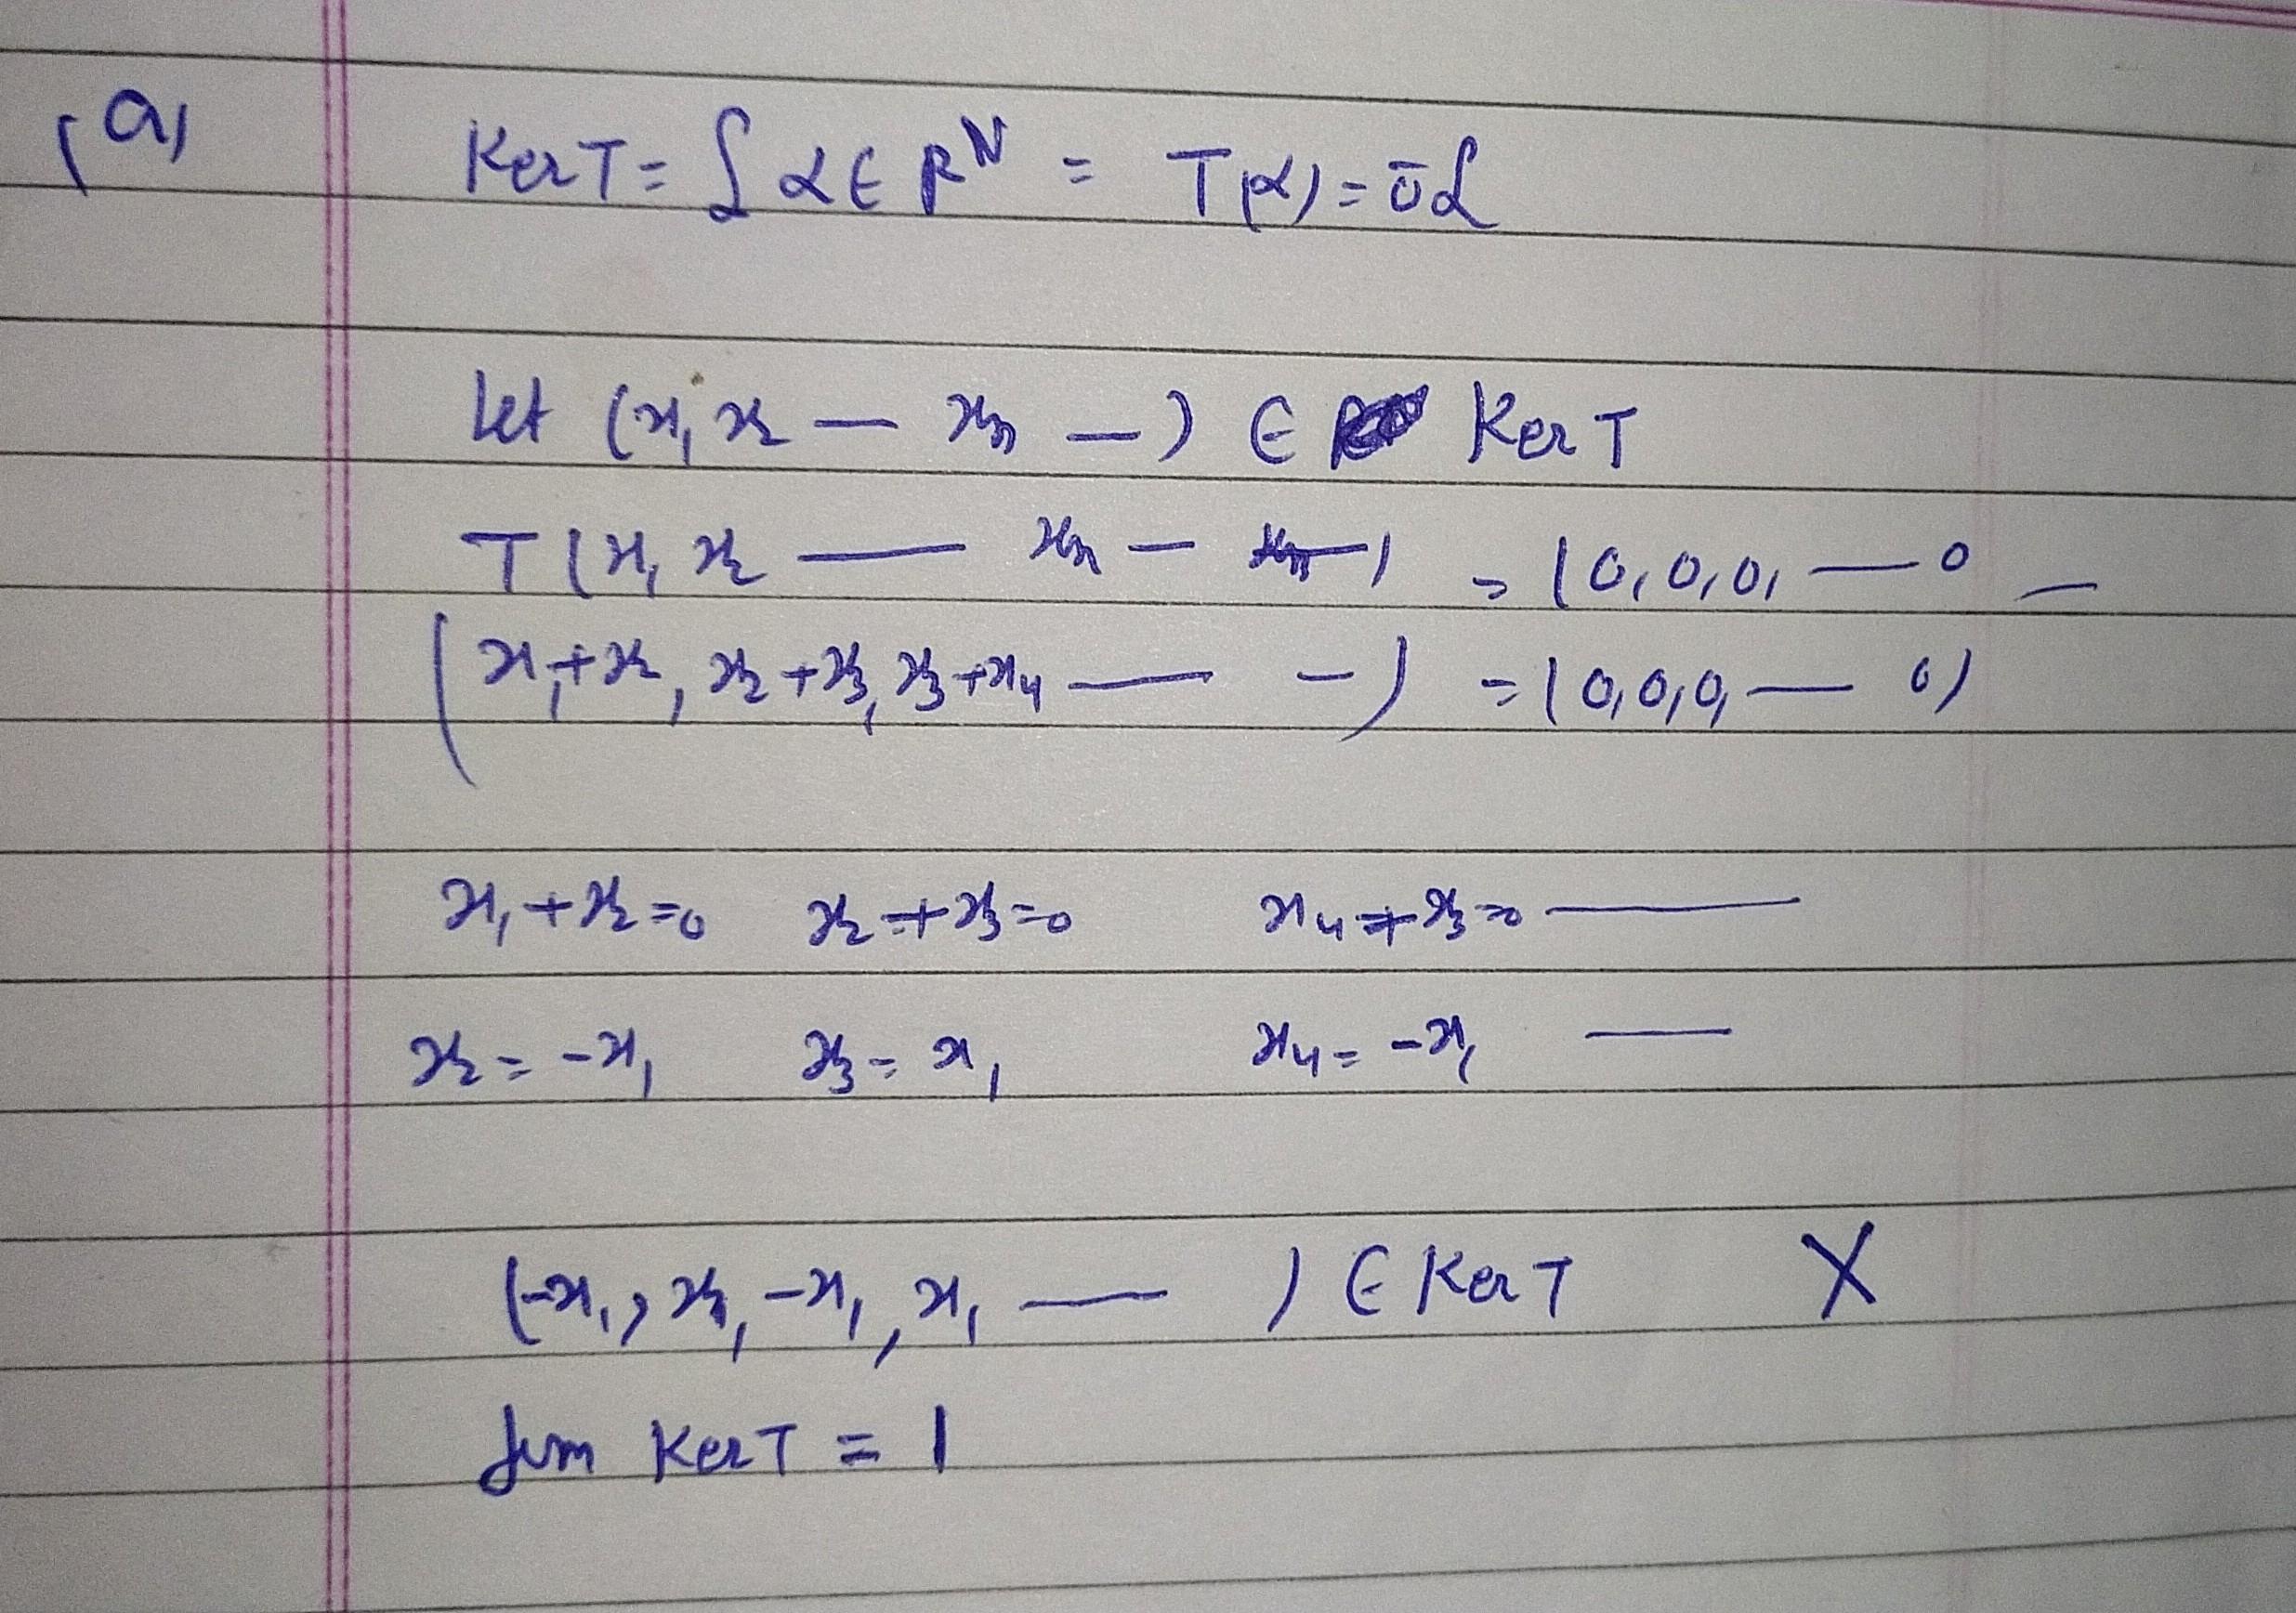 (a) Ker T = { α ∈ R^N = T(α) = 0̄ }
Let (x₁ x₂ — xₙ —) ∈ Ker T
T(x₁ x₂ — xₙ — ) = (0,0,0, — 0 —
(x₁+x₂, x₂+x₃, x₃+x₄ — –) = (0,0,0, — 0)
x₁+x₂=0 x₂+x₃=0 x₄+x₃=0 —
x₂ = -x₁ x₃ = x₁ x₄ = -x₁ —
(-x₁, x₁, -x₁, x₁ — ) ∈ Ker T X
dim Ker T = 1